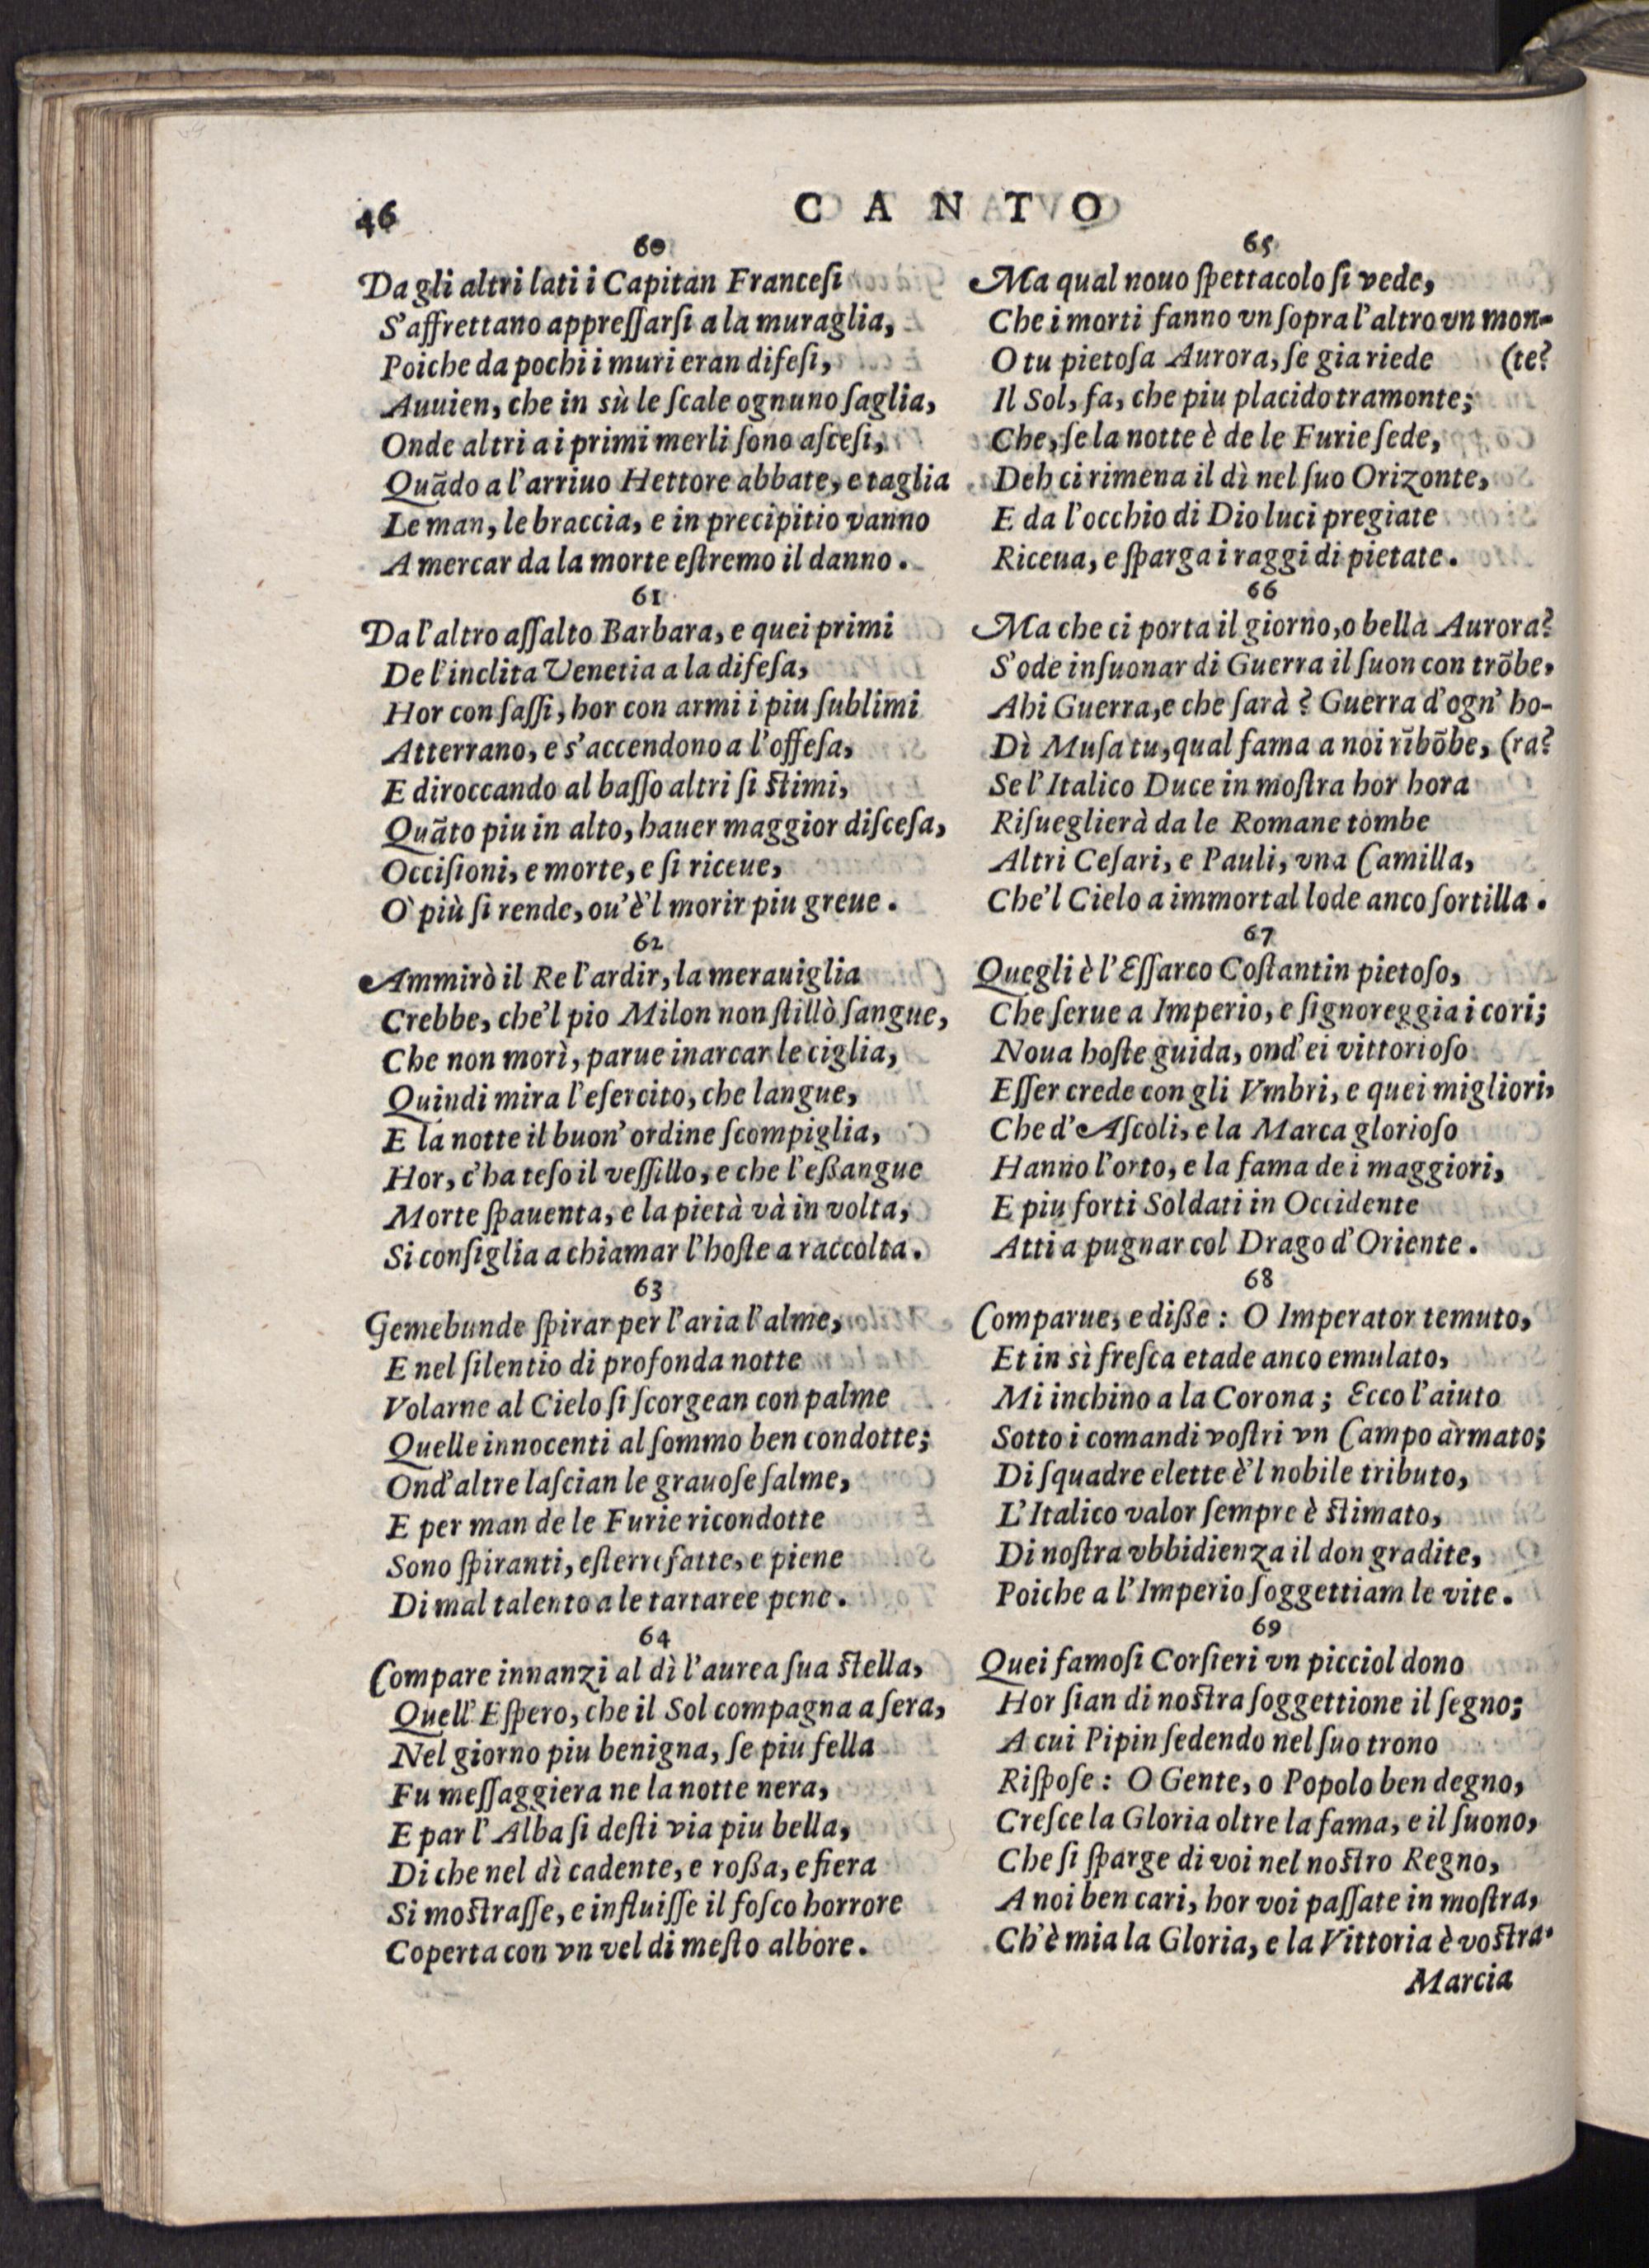 46
CANTO
60
Da gli altri lati i Capitan Franceſi
S'affrettano appreſſarſi a la muraglia,
Poiche da pochi i muri eran difeſi,
Auuien, che in sù le ſcale ognuno ſaglia,
Onde altri a i primi merli ſono aſceſi,
Quãdo a l'arriuo Hettore abbate, e taglia
Le man, le braccia, e in precipitio vanno
A mercar da la morte eſtremo il danno.
61
Da l'altro aſſalto Barbara, e quei primi
De l'inclita Venetia a la difeſa,
Hor con ſaſſi, hor con armi i piu ſublimi
Atterrano, e s'accendono a l'offeſa,
E diroccando al baſſo altri ſi ſtimi,
Quãto piu in alto, hauer maggior diſceſa,
Occiſioni, e morte, e ſi riceue,
O' più ſi rende, ou'è'l morir piu greue.
62
Ammirò il Re l'ardir, la merauiglia
Crebbe, che'l pio Milon non ſtillò ſangue,
Che non morì, parue inarcar le ciglia,
Quindi mira l'eſercito, che langue,
E la notte il buon' ordine ſcompiglia,
Hor, c'ha teſo il veſſillo, e che l'eßangue
Morte ſpauenta, e la pietà và in volta,
Si conſiglia a chiamar l'hoſte a raccolta.
63
Gemebunde ſpirar per l'aria l'alme,
E nel ſilentio di profonda notte
Volarne al Cielo ſi ſcorgean con palme
Quelle innocenti al ſommo ben condotte;
Ond'altre laſcian le grauoſe ſalme,
E per man de le Furie ricondotte
Sono ſpiranti, eſterrefatte, e piene
Di mal talento a le tartaree pene.
64
Compare innanzi al dì l'aurea ſua ſtella,
Quell' Eſpero, che il Sol compagna a ſera,
Nel giorno piu benigna, ſe piu fella
Fu meſſaggiera ne la notte nera,
E par l'Alba ſi deſti via piu bella,
Di che nel dì cadente, e roßa, e fiera
Si moſtraſſe, e influiſſe il foſco horrore
Coperta con vn vel di meſto albore.
65
Ma qual nouo ſpettacolo ſi vede,
Che i morti fanno vn ſopra l'altro vn mon-
O tu pietoſa Aurora, ſe gia riede (te?
Il Sol, fa, che piu placido tramonte;
Che, ſe la notte è de le Furie ſede,
Deh ci rimena il dì nel ſuo Orizonte,
E da l'occhio di Dio luci pregiate
Riceua, e ſparga i raggi di pietate.
66
Ma che ci porta il giorno, o bella Aurora?
S'ode inſuonar di Guerra il ſuon con trõbe,
Ahi Guerra, e che ſarà? Guerra d'ogn' ho-
Dì Muſa tu, qual fama a noi rĩbõbe, (ra?
Se l'Italico Duce in moſtra hor hora
Riſueglierà da le Romane tombe
Altri Ceſari, e Pauli, vna Camilla,
Che'l Cielo a immortal lode anco ſortilla.
67
Quegli è l'Eſſarco Coſtantin pietoſo,
Che ſerue a Imperio, e ſignoreggia i cori;
Noua hoſte guida, ond'ei vittorioſo
Eſſer crede con gli Vmbri, e quei migliori,
Che d'Aſcoli, e la Marca glorioſo
Hanno l'orto, e la fama de i maggiori,
E piu forti Soldati in Occidente
Atti a pugnar col Drago d'Oriente.
68
Comparue, e diße: O Imperator temuto,
Et in sì freſca etade anco emulato,
Mi inchino a la Corona; Ecco l'aiuto
Sotto i comandi voſtri vn Campo armato;
Di ſquadre elette è'l nobile tributo,
L'Italico valor ſempre è ſtimato,
Di noſtra vbbidienza il don gradite,
Poiche a l'Imperio ſoggettiam le vite.
69
Quei famoſi Corſieri vn picciol dono
Hor ſian di noſtra ſoggettione il ſegno;
A cui Pipin ſedendo nel ſuo trono
Riſpoſe: O Gente, o Popolo ben degno,
Creſce la Gloria oltre la fama, e il ſuono,
Che ſi ſparge di voi nel noſtro Regno,
A noi ben cari, hor voi paſſate in moſtra,
Ch'è mia la Gloria, e la Vittoria è voſtra.
Marcia